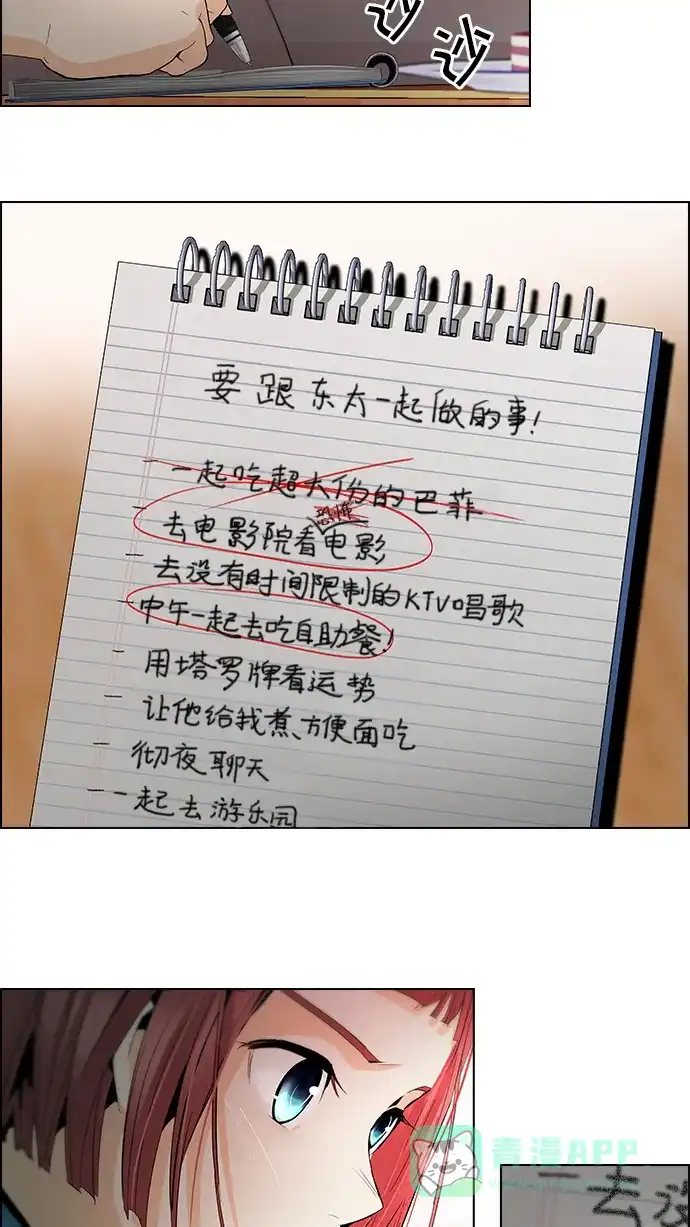 沙
沙
要跟东大一起做的事!
- 一起吃超大份的巴菲
恐怖
- 去电影院看电影
- 去没有时间限制的KTV唱歌
- 中午一起去吃自助餐!
- 用塔罗牌看运势
- 让他给我煮方便面吃
- 彻夜聊天
- 一起去游乐园
青漫APP
- 去没